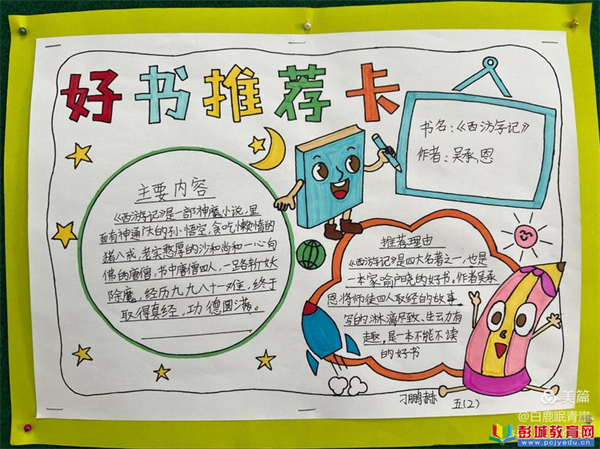 好书推荐卡
书名:《西游字记》
作者:吴承恩
主要内容
《西游记》是一部神魔小说,里
面有神通广大的孙悟空,贪吃懒惰的
猪八戒,老实憨厚的沙和尚和一心向
佛的唐僧,书中唐僧四人,一路斩妖
除魔,经历九九八十一难,终于
取得真经,功德圆满。
推荐理由
《西游记》是四大名著之一,也是
一本家喻户晓的好书,作者吴承
恩将师徒四人取经的故事,
写的淋漓尽致、生动有
趣,是一本不能不读
的好书
刁鹏赫
五(2)
美篇
@白鹿眠青崖
彭城教育网
www.pcjyedu.cn